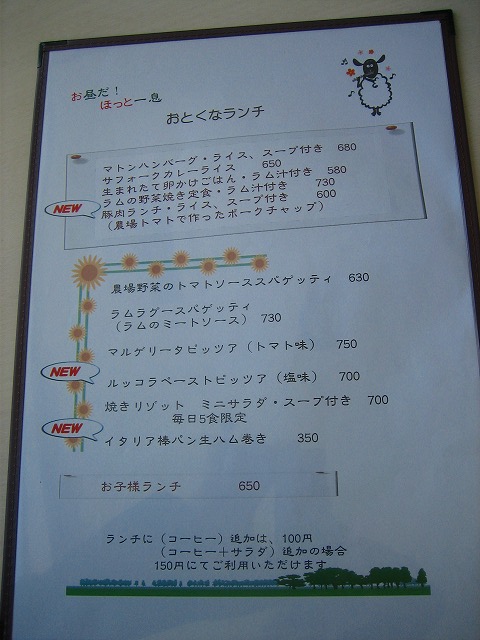 お昼だ！
ほっと一息
おとくなランチ
マトンハンバーグ・ライス、スープ付き 680
サフォークカレーライス 650
生まれたて卵かけごはん・ラム汁付き 580
ラムの野菜焼き定食・ラム汁付き 730
NEW 豚肉ランチ・ライス、スープ付き 600
（農場トマトで作ったポークチャップ）
農場野菜のトマトソーススパゲッティ 630
ラムラグースパゲッティ
（ラムのミートソース） 730
マルゲリータピッツア（トマト味） 750
NEW ルッコラペーストピッツア（塩味） 700
焼きリゾット ミニサラダ・スープ付き 700
毎日5食限定
NEW イタリア棒パン生ハム巻き 350
お子様ランチ 650
ランチに（コーヒー）追加は、100円
（コーヒー＋サラダ）追加の場合
150円にてご利用いただけます